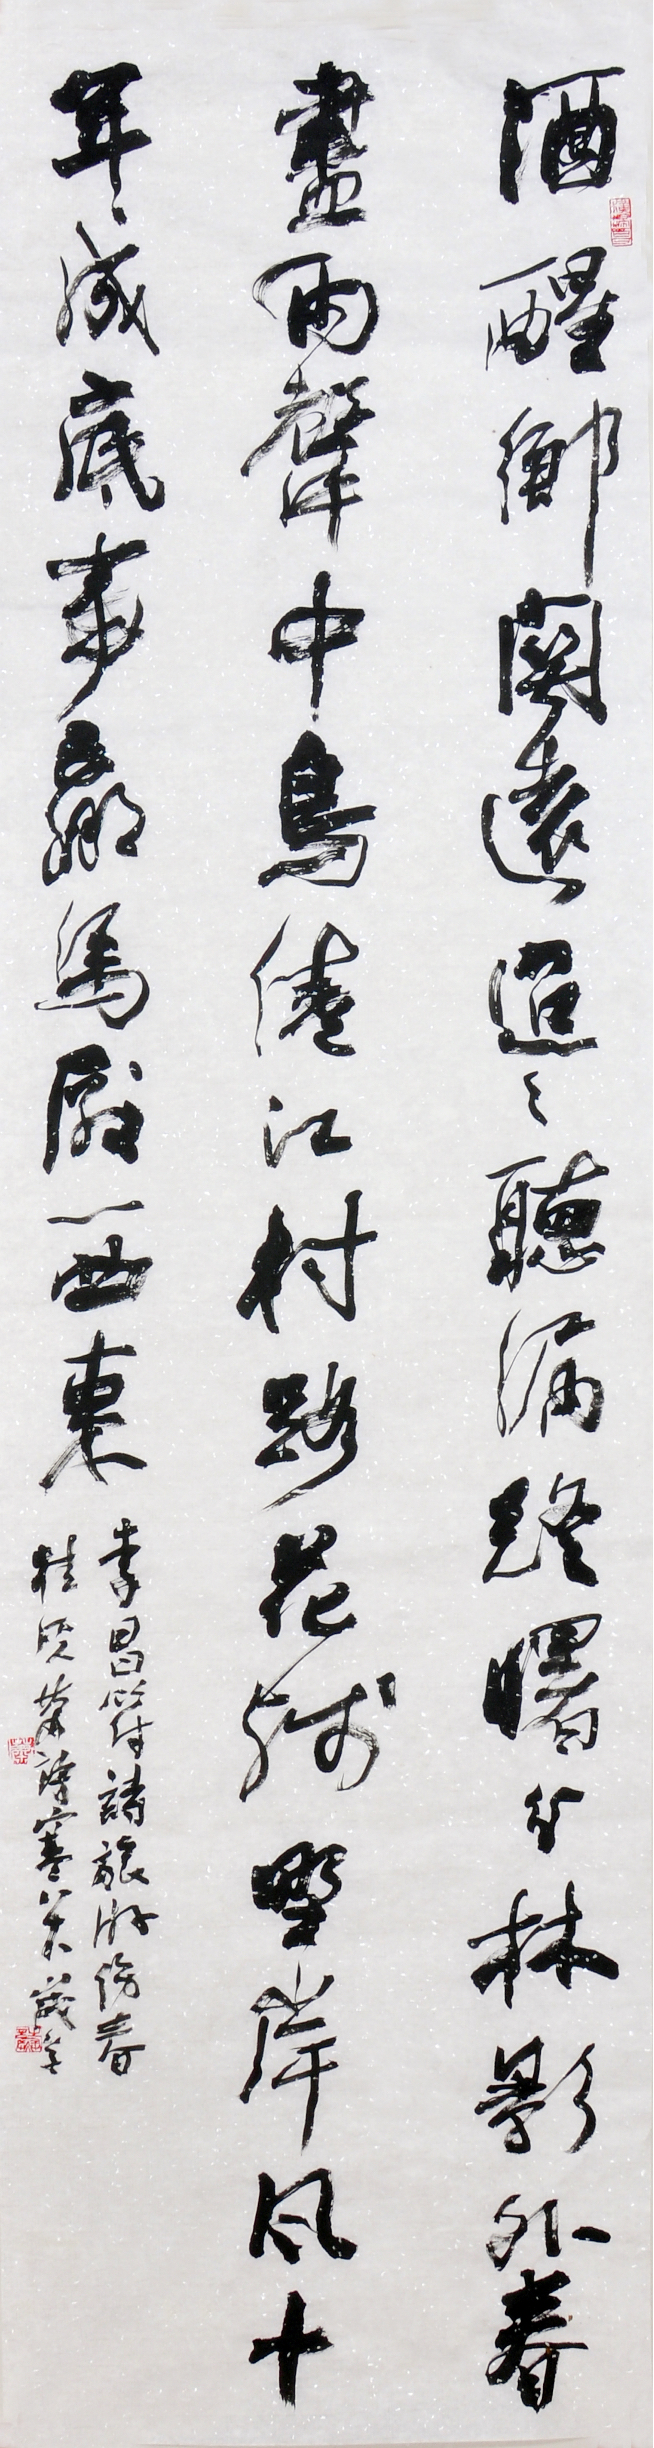 酒醒鄉關遠迢々聽漏終曙分林影外春
盡雨聲中鳥倦江村路花殘野岸風十
年成底事羸馬厭西東
李昌符詩旅游傷春